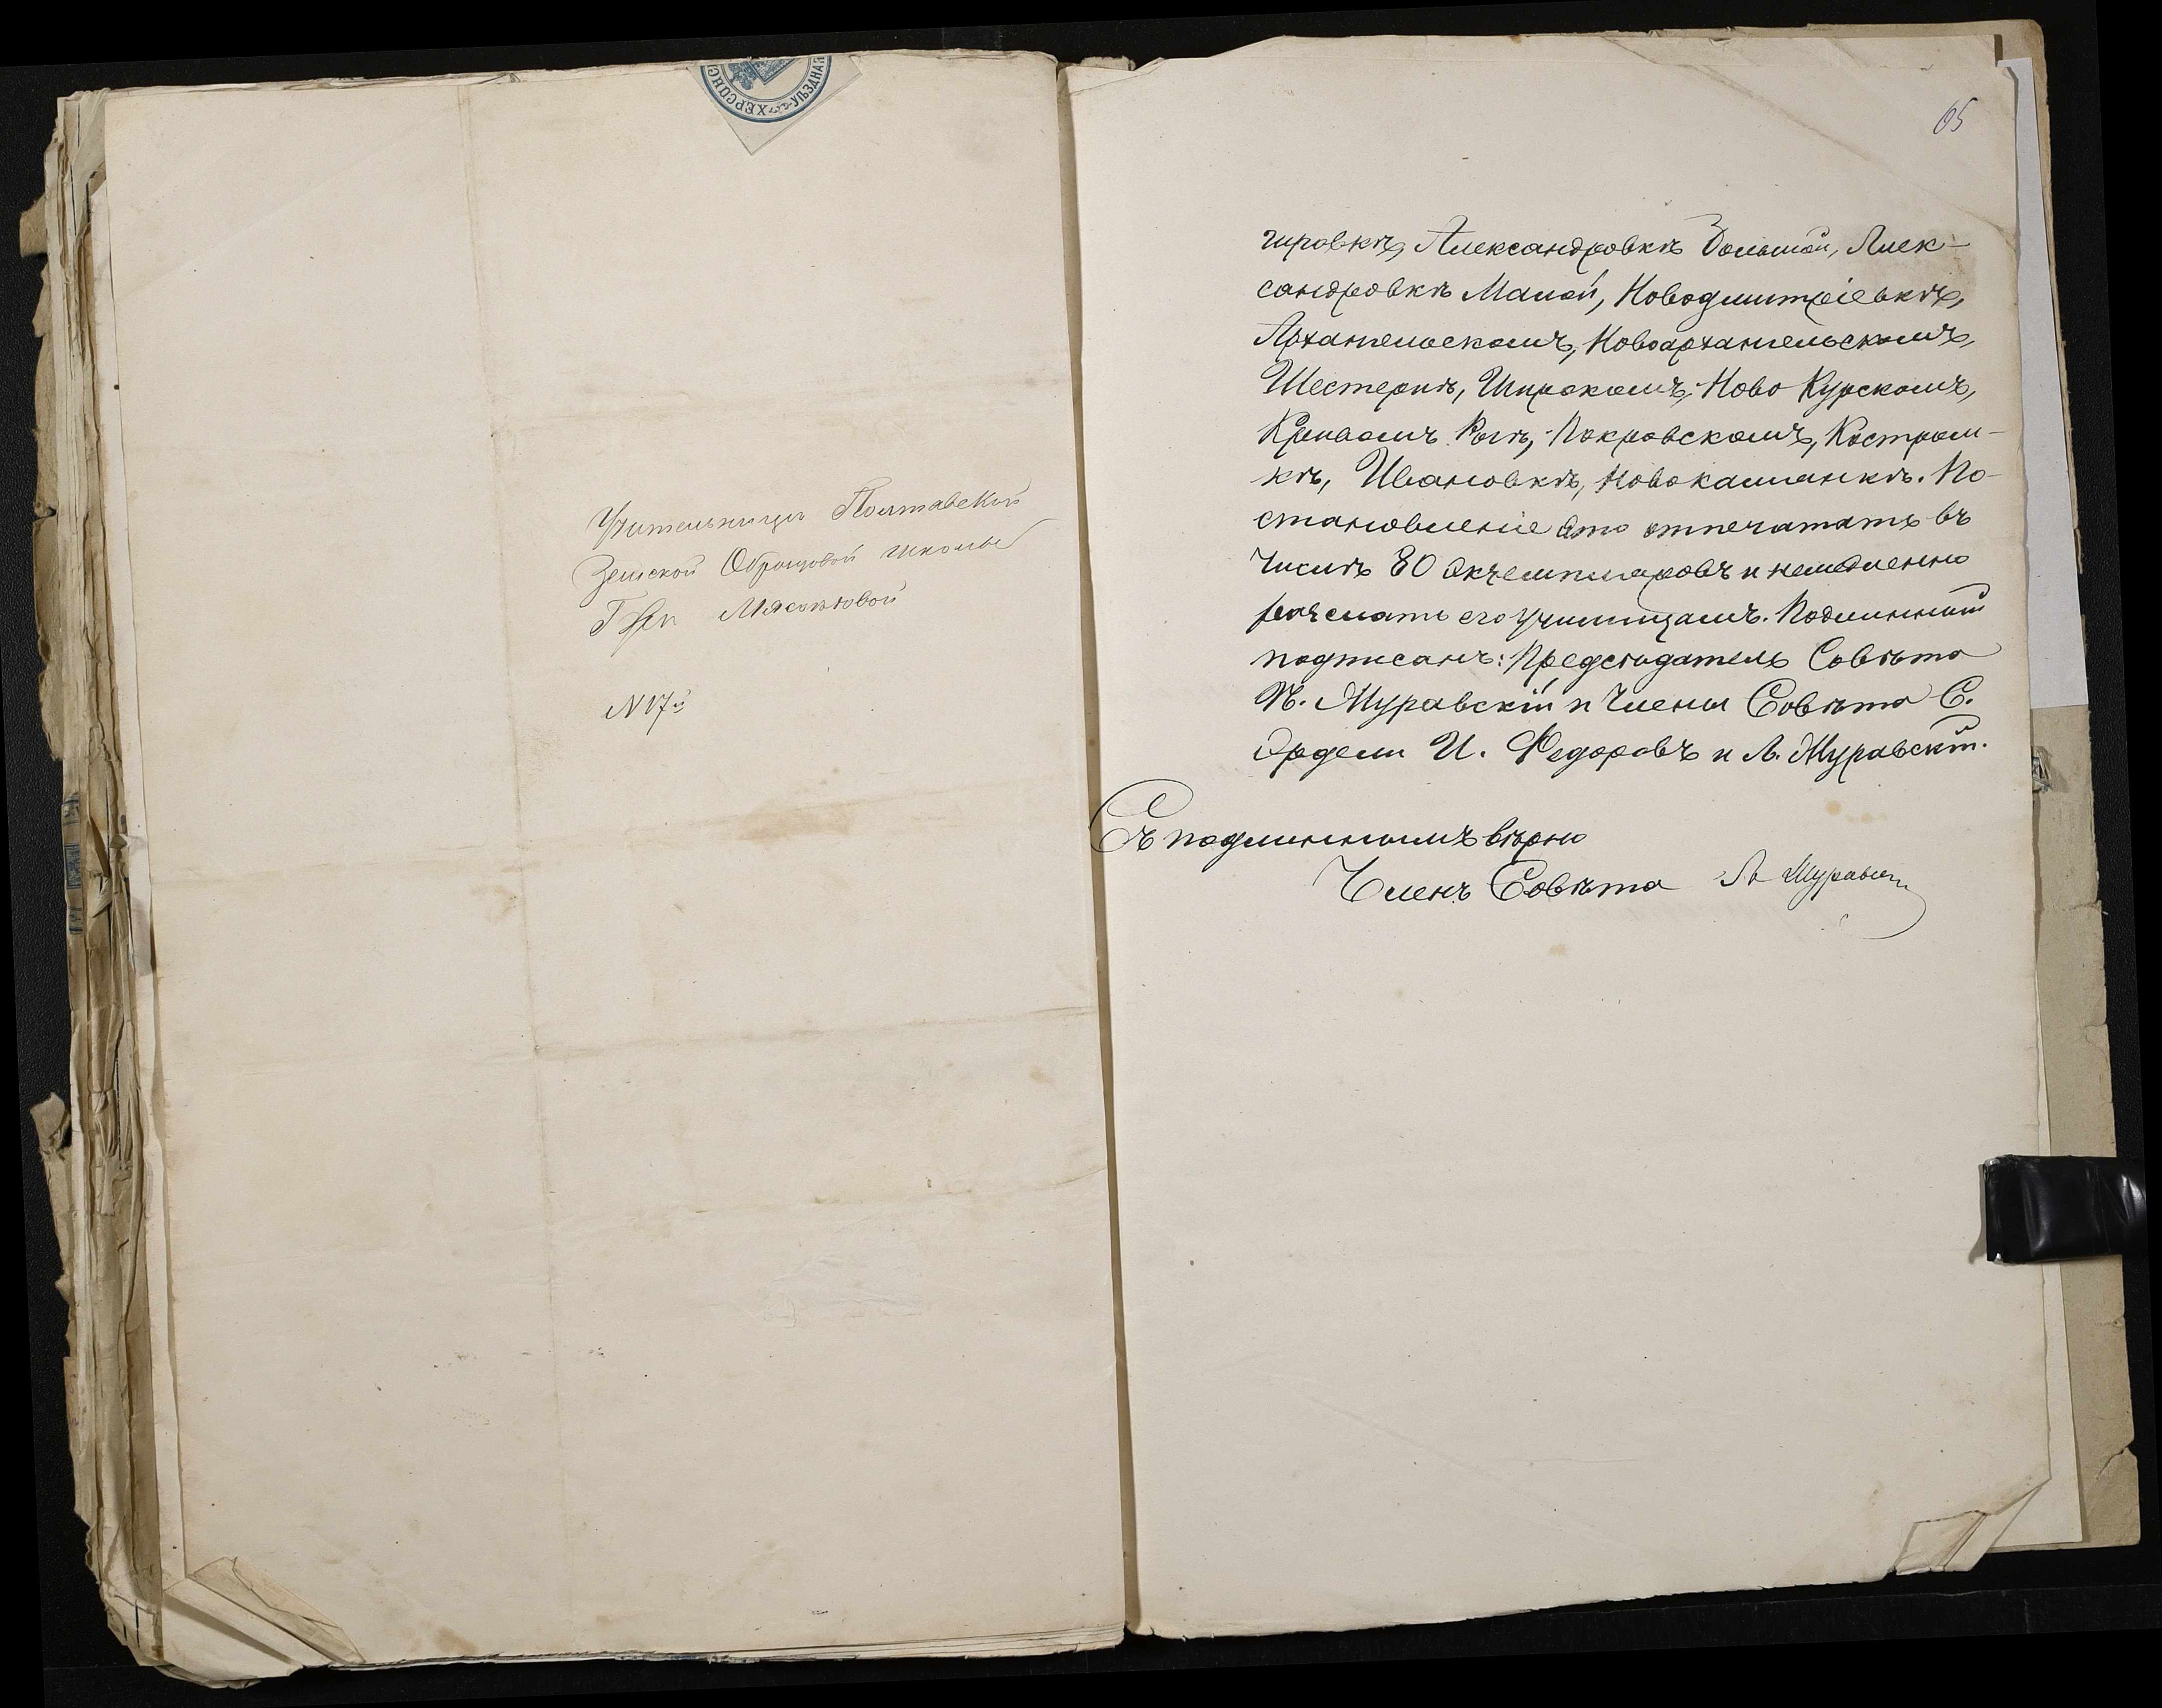 ХЕРСОНС
УѢЗДНАГ
Учительницѣ Полтавской
Земской Образцовой школы
Г-жи Мясоѣдовой
N 17й
65
гировкѣ, Александровкѣ Большой, Алек-
сандровкѣ Малой, Новодмитріевкѣ,
Архангельскомъ, Новоархангельскомъ,
Шестернѣ, Широкомъ, Ново Курскомъ,
Кривомъ Рогѣ, Покровскомъ, Костром-
кѣ, Ивановкѣ, Новокашланкѣ. По-
становленіе это отпечатать въ
Числѣ 80 экземпляровъ и немедленно
разслать его Училищамъ. Подлинный
подписанъ: Предсѣдатель Совѣта
П. Муравскій и Члены Совѣта С.
Эрдели И. Федоровъ и Л. Муравскій.
Съ подлиннымъ вѣрно
Членъ Совѣта Л Муравск